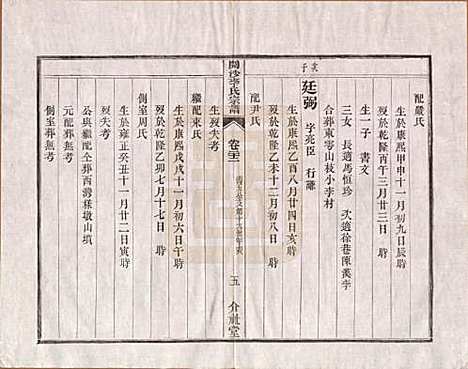 配嚴氏
生於康熙甲申十一月初九日辰時
歿於乾隆丙午三月廿三日時
生一子 書文
三女 長適馬恒珍 次適徐巷陳萬亭
合葬東零山枝小李村
次子
廷弼 字亮臣 行
生於康熙乙酉八月廿四日亥時
歿於乾隆乙未十二月初八日時
配尹氏
開沙李氏宗譜
卷二十二
五
介祉堂
生歿失考
繼配朱氏
生於康熙戊戌十一月初六日時
歿於乾隆乙卯七月十七日時
側室周氏
生於雍正癸丑十一月廿二日寅時
歿失考
公與繼配仝葬西灣蔴墩山塡
側室葬無考